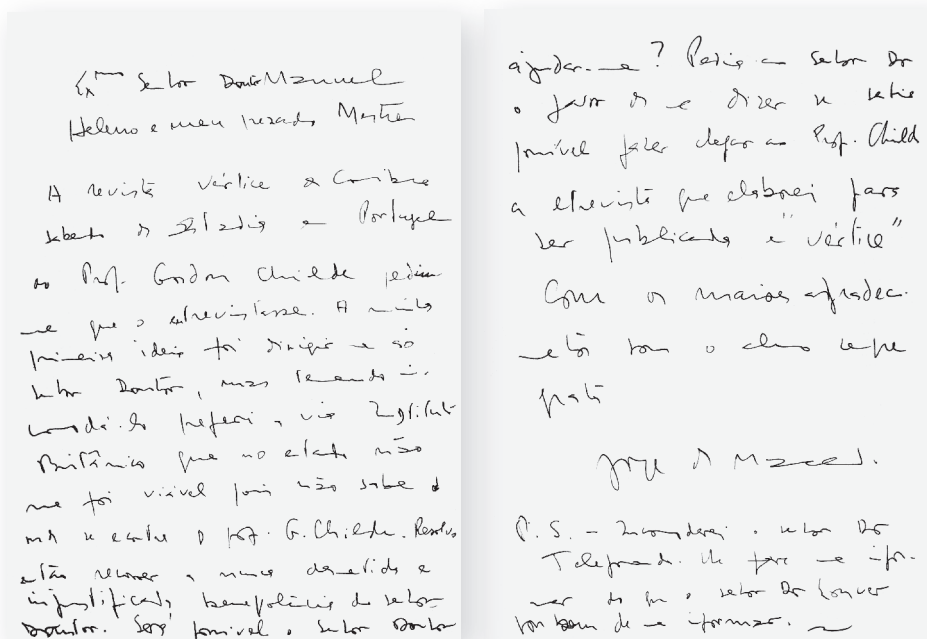 Exmo Senhor Doutor Manuel
Heleno e meu prezado Mestre
A revista Vértice de Coimbra
sabendo da estadia em Portugal
do Prof. Gordon Childe pediu-
me que o entrevistasse. A minha
primeira ideia foi dirigir-me ao
senhor Doutor, mas temendo in-
comodá-lo preferi a via Instituto
Britânico que no entanto não
me foi viável pois não sabe
se encontra o prof. G. Childe. Resolvi
então recorrer à nunca desmentida e
injustificada benevolência do senhor
Doutor. Será possível o senhor Doutor
ajudar-me? Pedia ao senhor Dr
o favor de me dizer se seria
possível fazer chegar ao Prof. Childe
a entrevista que elaborei para
ser publicada em "Vértice"
Com os maiores agradeci-
mentos sou o aluno sempre
grato
Jorge de Macedo.
P.S. - senhor Dr
Telefonando-lhe para me infor-
mar do que o senhor Dr houver
por bem de me informar.